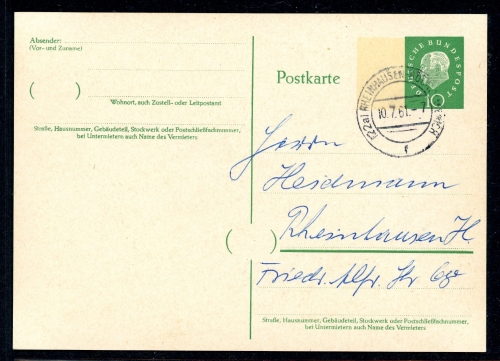 Absender:
(Vor- und Zuname)
( )
Wohnort, auch Zustell- oder Leitpostamt
Straße, Hausnummer, Gebäudeteil, Stockwerk oder Postschließfachnummer,
bei Untermietern auch Name des Vermieters
DEUTSCHE BUNDESPOST
10
Postkarte
(22a) RHEINHAUSEN
10.7.61.-
f
Herrn
Heidmann
Rheinhausen H.
( )
Friedr. Alfr. Str
Straße, Hausnummer, Gebäudeteil, Stockwerk oder Postschließfachnummer,
bei Untermietern auch Name des Vermieters